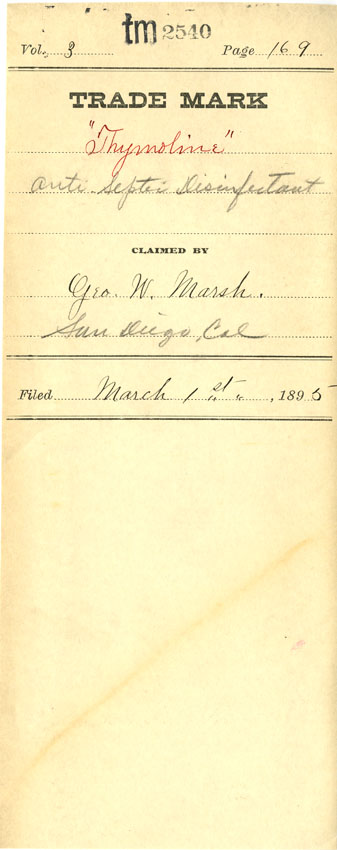 tm 2540
Vol. 3 Page 169
TRADE MARK
"Thymoline"
Anti Septic Disinfectant
CLAIMED BY
Geo. W. Marsh.
San Diego, Cal
Filed March 1st " " , 1895